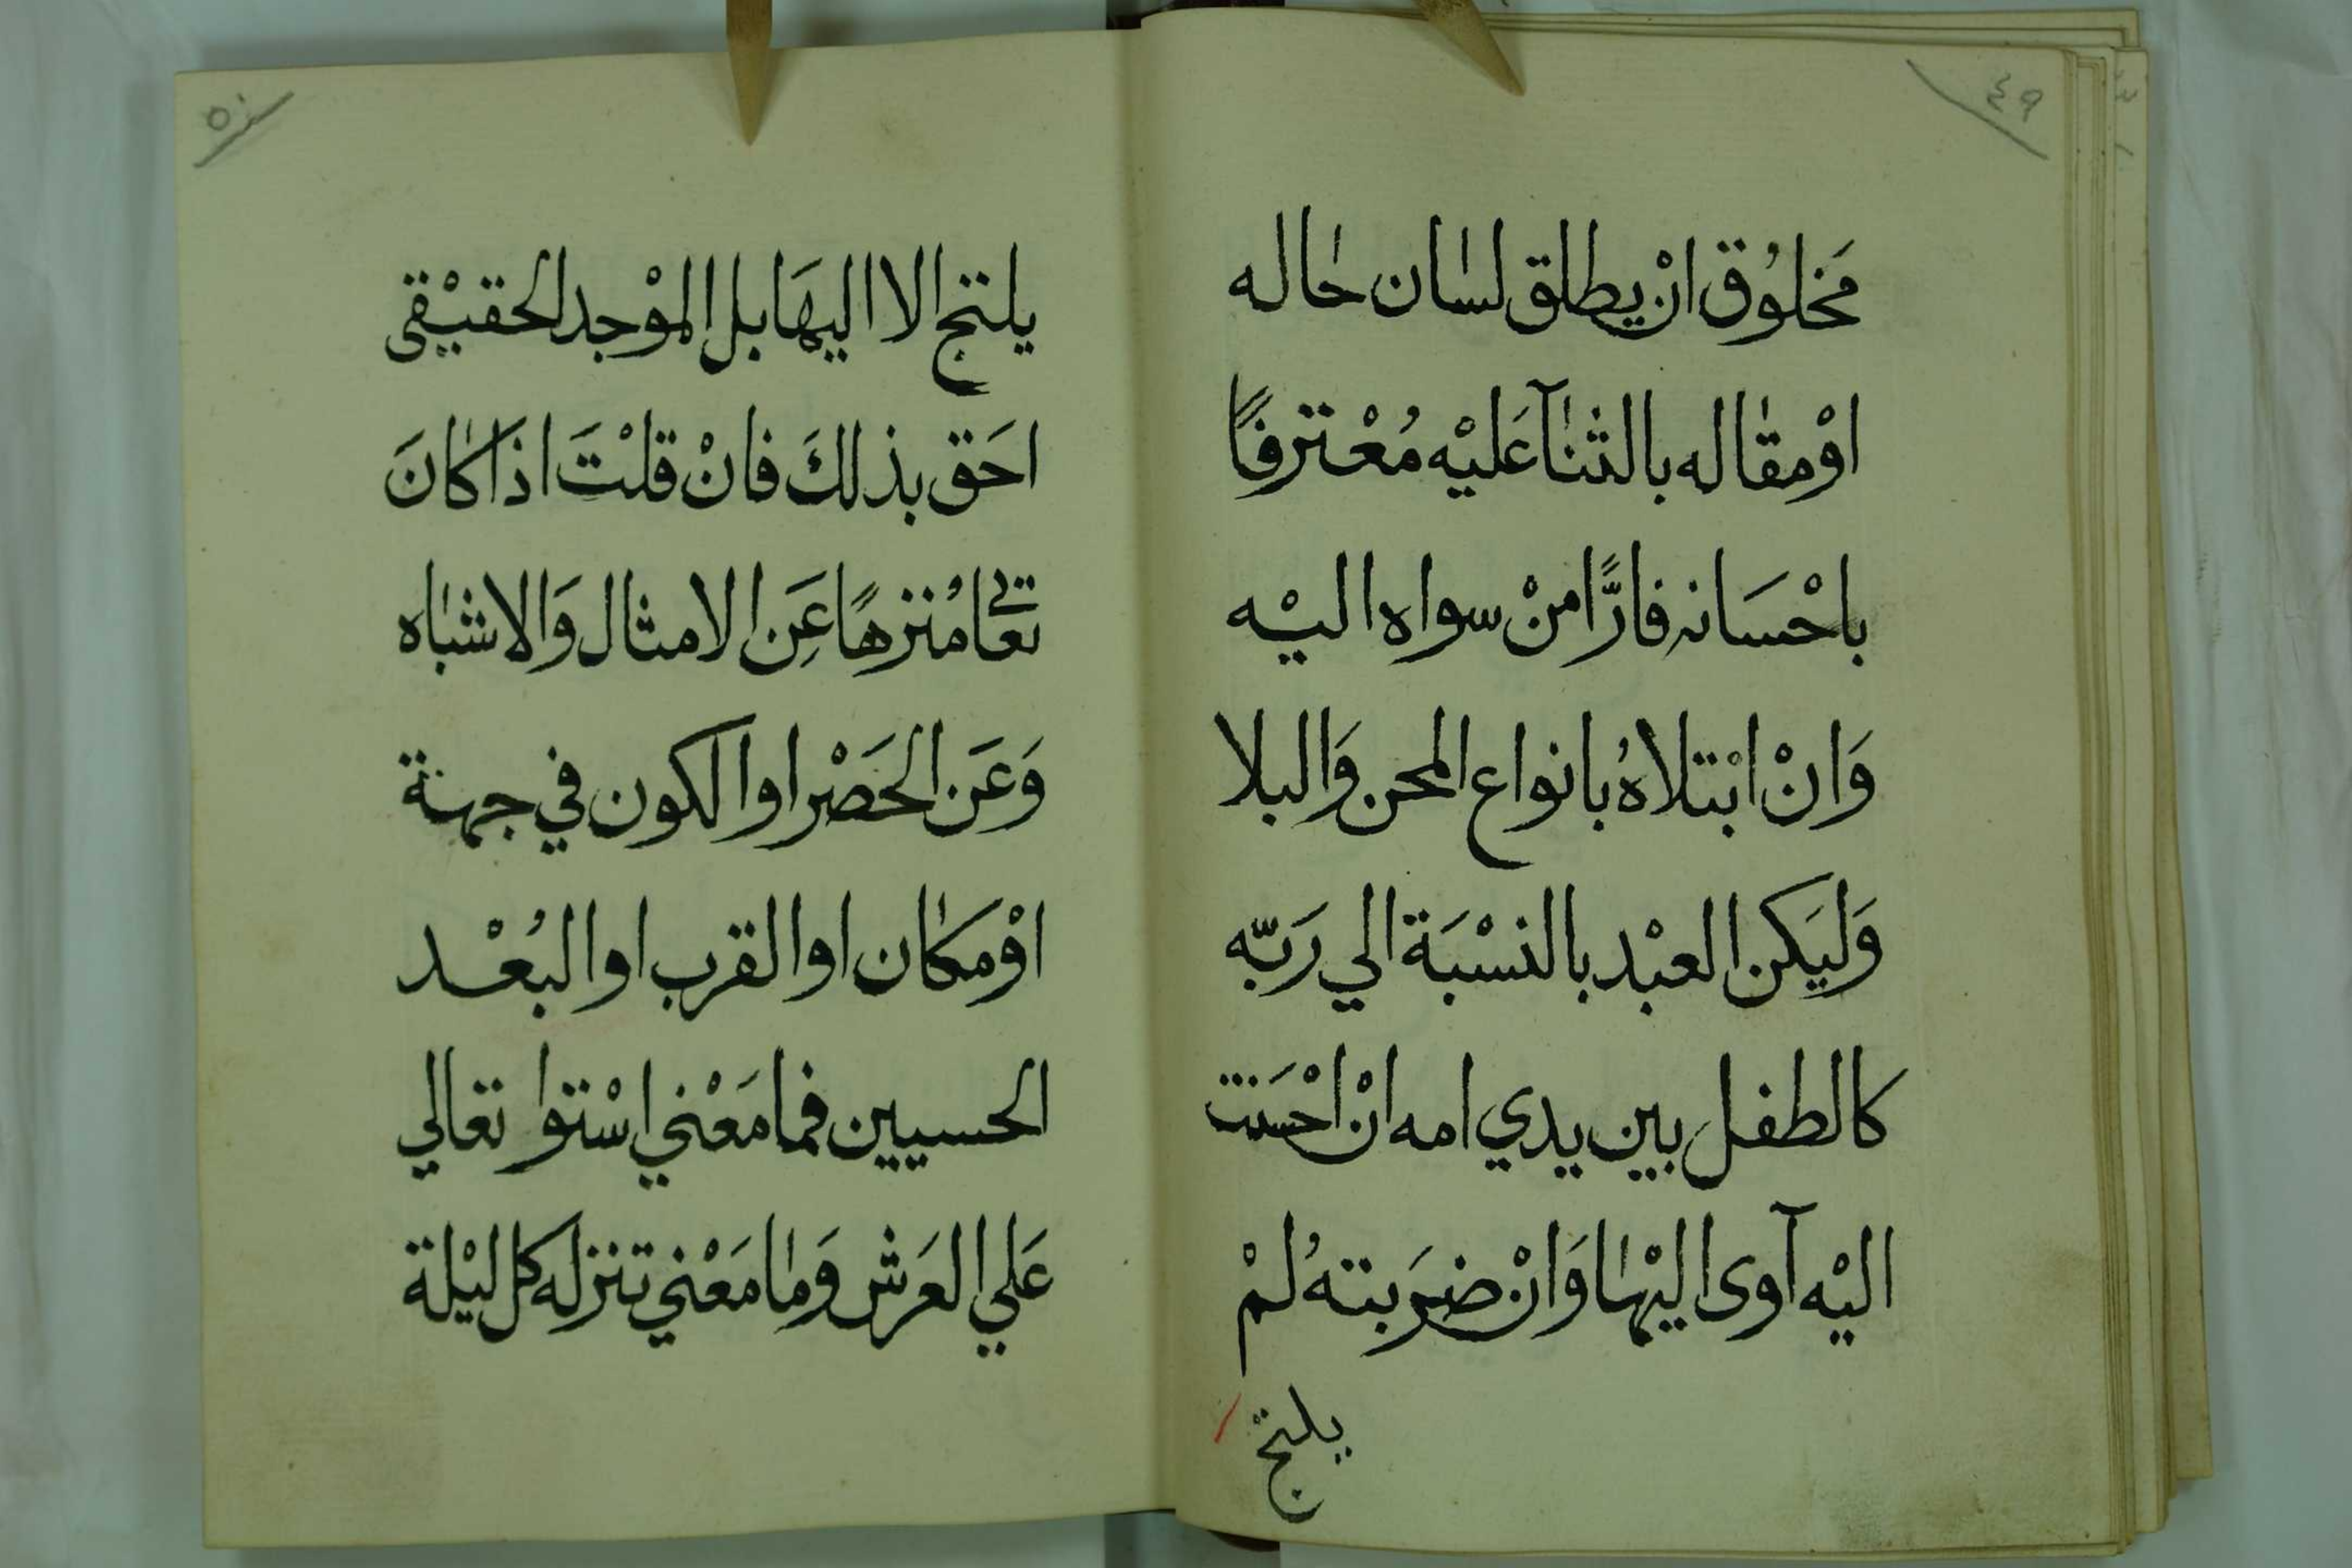 ٤٩
مَخلوُق انْ يطلق لسٰان حٰاله
اوْ مقٰاله بالثنٰآ عَليْه مُعْترفًا
باحْسَانه فارًّا منْ سواه اليْه
وَانْ ابْتلاهُ بانواع المحن وَالبلا
وَليَكن العبْد بالنسْبَة الي رَبّه
كالطفل بين يدي امه انْ احْسَنت
اليْه آوى اليْهٰا وَانْ ضرَبتهُ لمْ
يلتج
٥٠
يلتج الا اليهَا بل الموْجد الحقيْقى
احَق بذلكَ فانْ قلْتَ اذَا كٰانَ
تعٰالى مُنزهًا عَنِ الامثال وَالاشبٰاه
وَعَن الحَصْر او الكون في جهة
اوْ مكٰان او القرب او البُعْد
الحسيين فما مَعْني اسْتوا تعالي
عَلي العَرش وَمٰا مَعْني تنزله كل ليْلة